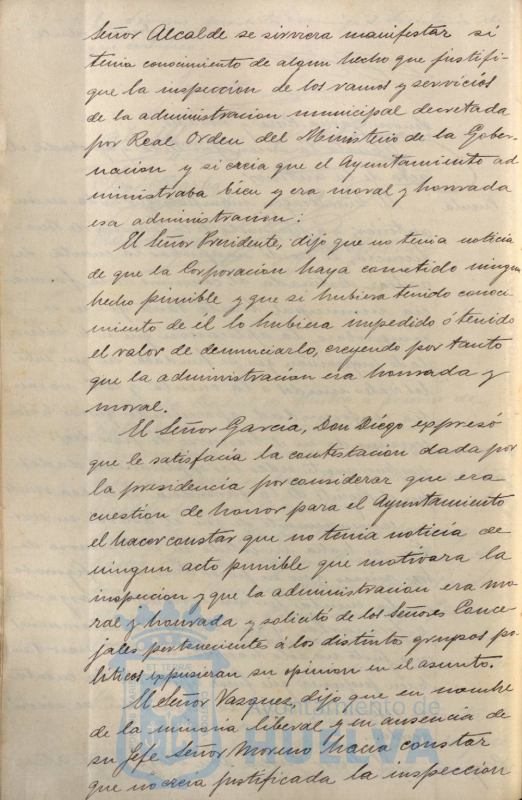 Señor Alcalde se sirviera manifestar si
tenia conocimiento de algun hecho que justifi-
que la inspeccion de los ramos y servicios
de la administracion municipal decretada
por Real Orden del Ministerio de la Gober-
nacion y si creia que el Ayuntamiento ad
ministraba bien y era moral y honrada
esa administracion:
El Señor Presidente, dijo que no tenia noticia
de que la Corporacion haya cometido ningun
hecho punible y que si hubiera tenido conoci-
miento de él lo hubiera impedido ó tenido
el valor de denunciarlo, creyendo por tanto
que la administracion era honrada y
moral.
El Señor García, Don Diégo expresó
que le satisfacía la contestacion dada por
la presidencia por considerar que era
cuestion de honor para el Ayuntamiento
el hacer constar que no tenia noticia de
ningun acto punible que motivara la
inspeccion y que la administracion era mo
ral y honrada y solicitó de los Señores Conce-
jales pertenecientes á los distintos grupos po-
líticos expusieran su opinion en el asunto.
El Señor Vazquez, dijo que en nombre
de la minoria liberal y en ausencia de
su Jefe Señor Moreno hacia constar
que no creia justificada la inspeccion
Ayuntamiento de
HUELVA